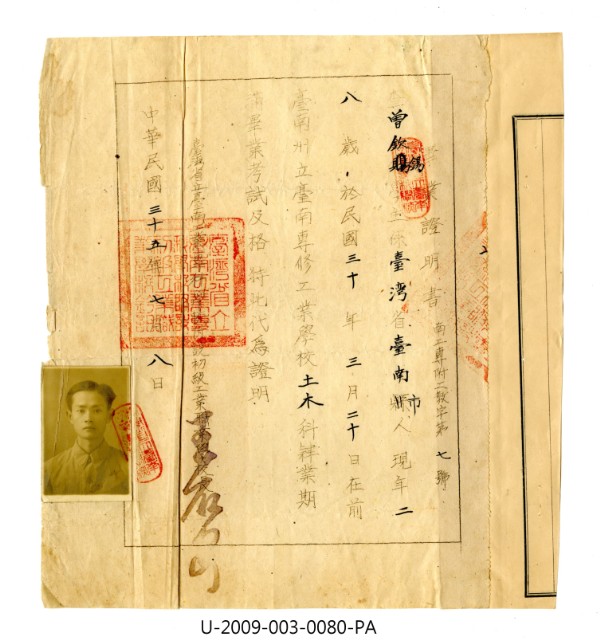 業證明書
南工專附工教字第七號
曾欽賜 錫 生係臺灣省臺南縣市人現年二
八歲於民國三十年三月二十日在前
臺南州立臺南專修工業學校土木科肄業期
滿畢業考試及格特此代為證明
臺灣省立臺南工業
初級工業
中華民國三十五年七月八日
U-2009-003-0080-PA